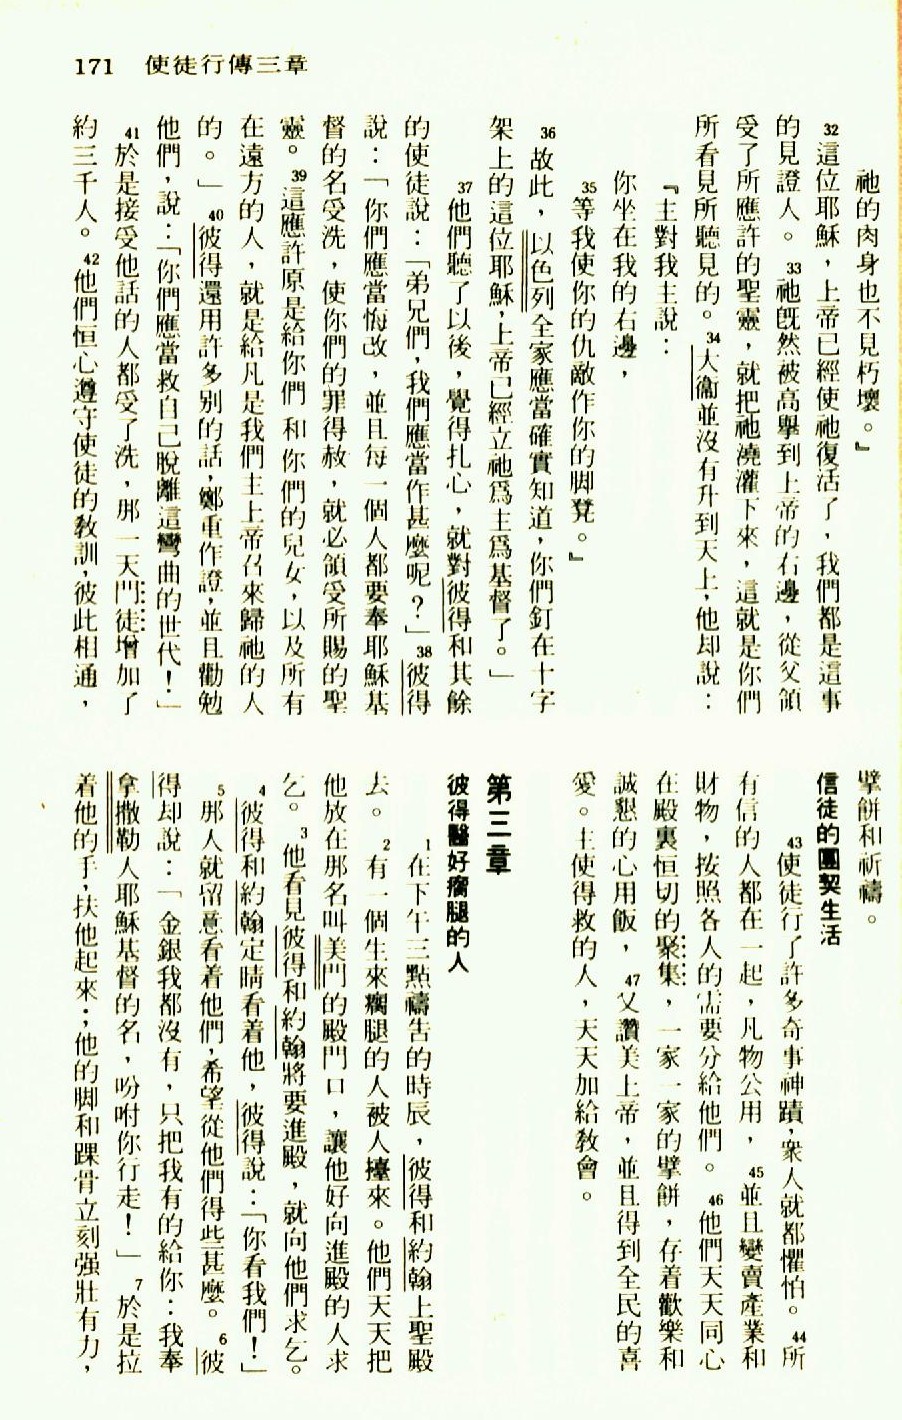 171 使徒行傳三章
祂的肉身也不見朽壞。』
32這位耶穌，上帝已經使祂復活了，我們都是這事
的見證人。33祂旣然被高擧到上帝的右邊，從父領
受了所應許的聖靈，就把祂澆灌下來，這就是你們
所看見所聽見的。34大衞並沒有升到天上，他却說：
『主對我主說：
你坐在我的右邊，
35等我使你的仇敵作你的脚凳。』
36故此，以色列全家應當確實知道，你們釘在十字
架上的這位耶穌，上帝已經立祂爲主爲基督了。」
37他們聽了以後，覺得扎心，就對彼得和其餘
的使徒說：「弟兄們，我們應當作甚麼呢？」38彼得
說：「你們應當悔改，並且每一個人都要奉耶穌基
督的名受洗，使你們的罪得赦，就必領受所賜的聖
靈。39這應許原是給你們和你們的兒女，以及所有
在遠方的人，就是給凡是我們主上帝召來歸祂的人
的。」40彼得還用許多別的話，鄭重作證，並且勸勉
他們，說：「你們應當救自己脫離這彎曲的世代！」
41於是接受他話的人都受了洗，那一天門徒增加了
約三千人。42他們恒心遵守使徒的敎訓，彼此相通，
擘餅和祈禱。
信徒的團契生活
43使徒行了許多奇事神蹟，衆人就都懼怕。44所
有信的人都在一起，凡物公用，45並且變賣產業和
財物，按照各人的需要分給他們。46他們天天同心
在殿裏恒切的聚集，一家一家的擘餅，存着歡樂和
誠懇的心用飯，47又讚美上帝，並且得到全民的喜
愛。主使得救的人，天天加給敎會。
第三章
彼得醫好瘸腿的人
1在下午三點禱吿的時辰，彼得和約翰上聖殿
去。2有一個生來瘸腿的人被人擡來。他們天天把
他放在那名叫美門的殿門口，讓他好向進殿的人求
乞。3他看見彼得和約翰將要進殿，就向他們求乞。
4彼得和約翰定睛看着他，彼得說：「你看我們！」
5那人就留意看着他們，希望從他們得些甚麼。6彼
得却說：「金銀我都沒有，只把我有的給你：我奉
拿撒勒人耶穌基督的名，吩咐你行走！」7於是拉
着他的手，扶他起來；他的脚和踝骨立刻强壯有力，